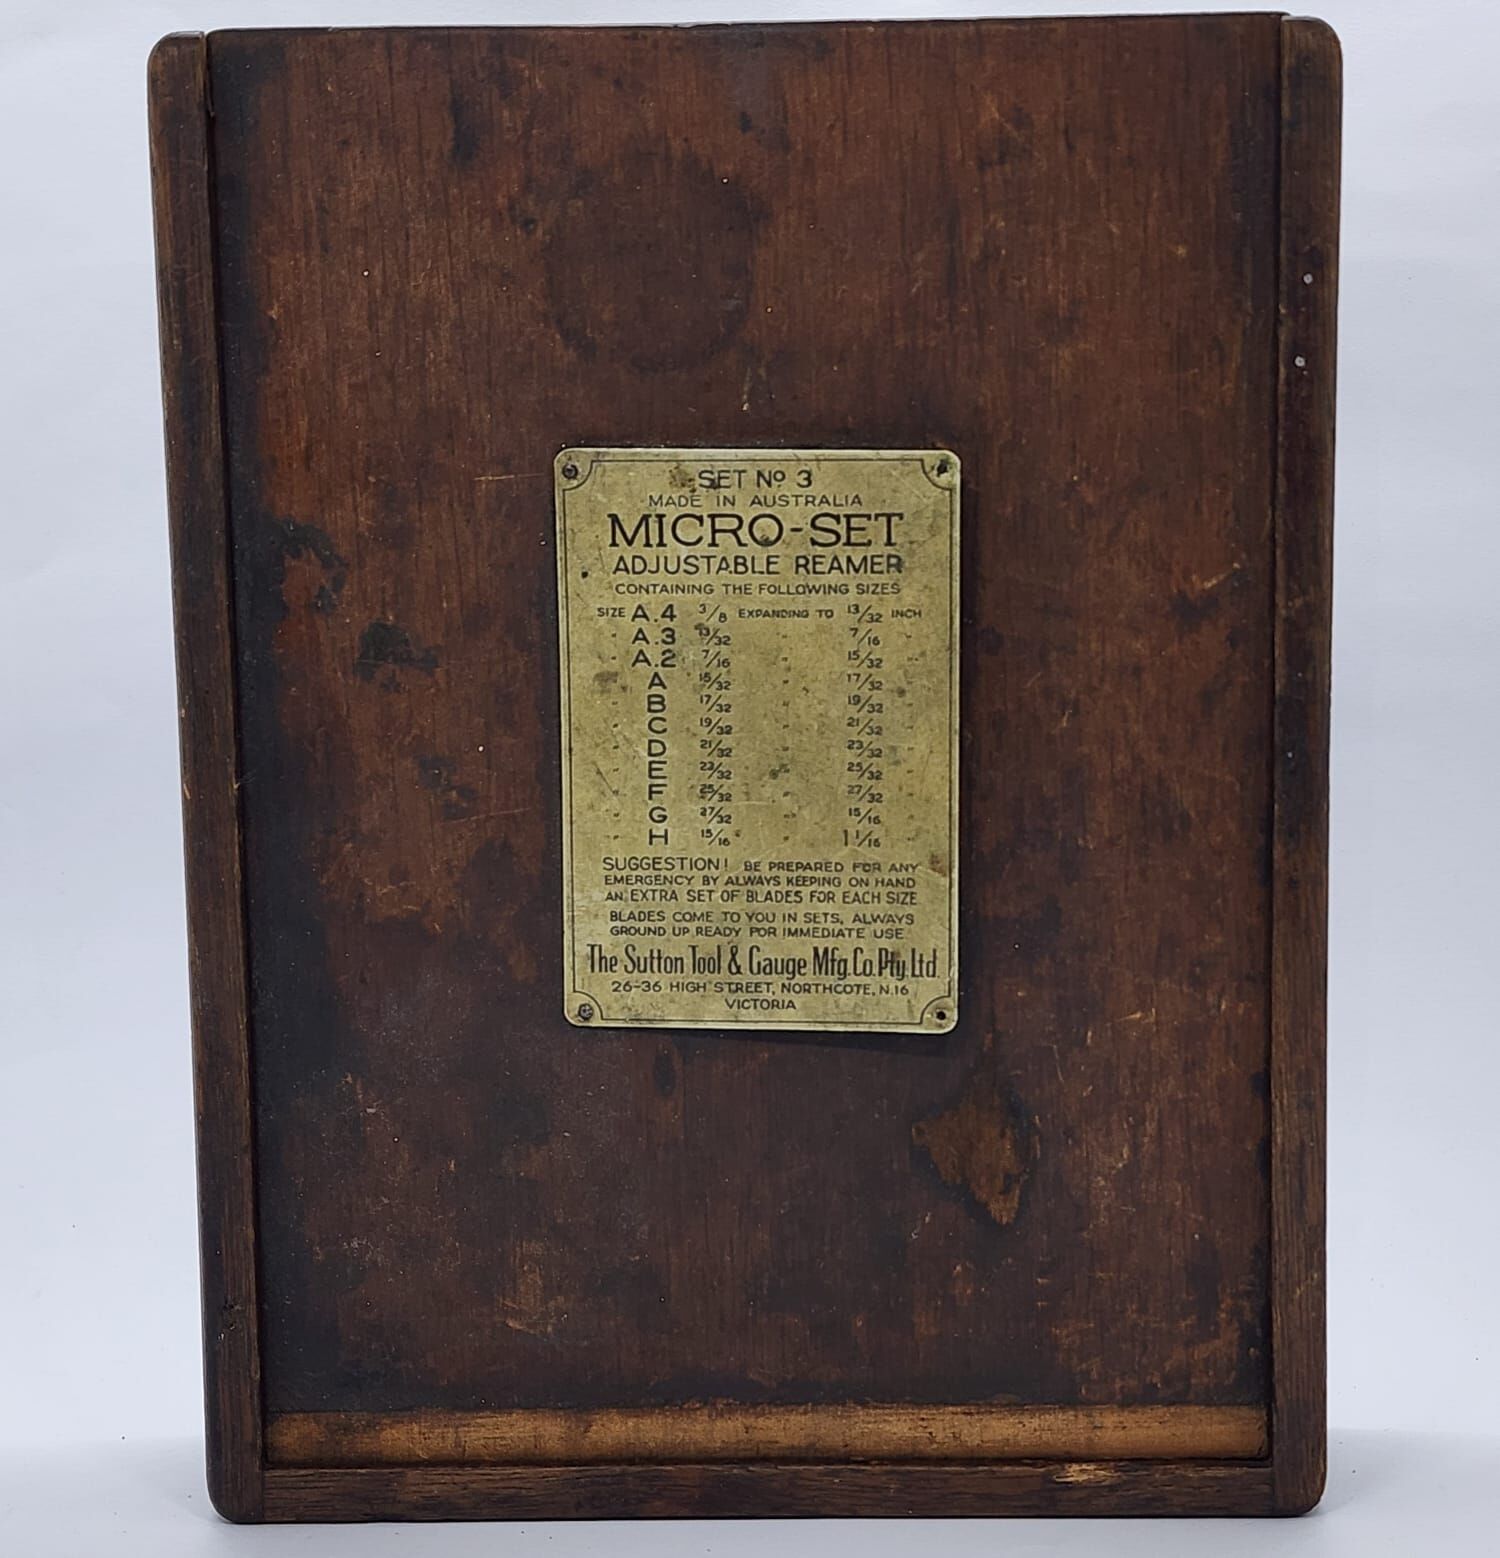 SET No 3
MADE IN AUSTRALIA
MICRO-SET
ADJUSTABLE REAMER
CONTAINING THE FOLLOWING SIZES
SIZE A.4 3/8 EXPANDING TO 13/32 INCH
" A.3 13/32 " 7/16 "
" A.2 7/16 " 15/32 "
" A 15/32 " 17/32 "
" B 17/32 " 19/32 "
" C 19/32 " 21/32 "
" D 21/32 " 23/32 "
" E 23/32 " 25/32 "
" F 25/32 " 27/32 "
" G 27/32 " 15/16 "
" H 15/16 " 1 1/16 "
SUGGESTION! BE PREPARED FOR ANY
EMERGENCY BY ALWAYS KEEPING ON HAND
AN EXTRA SET OF BLADES FOR EACH SIZE
BLADES COME TO YOU IN SETS, ALWAYS
GROUND UP READY FOR IMMEDIATE USE
The Sutton Tool & Gauge Mfg. Co. Pty. Ltd.
26-36 HIGH STREET, NORTHCOTE, N.16
VICTORIA